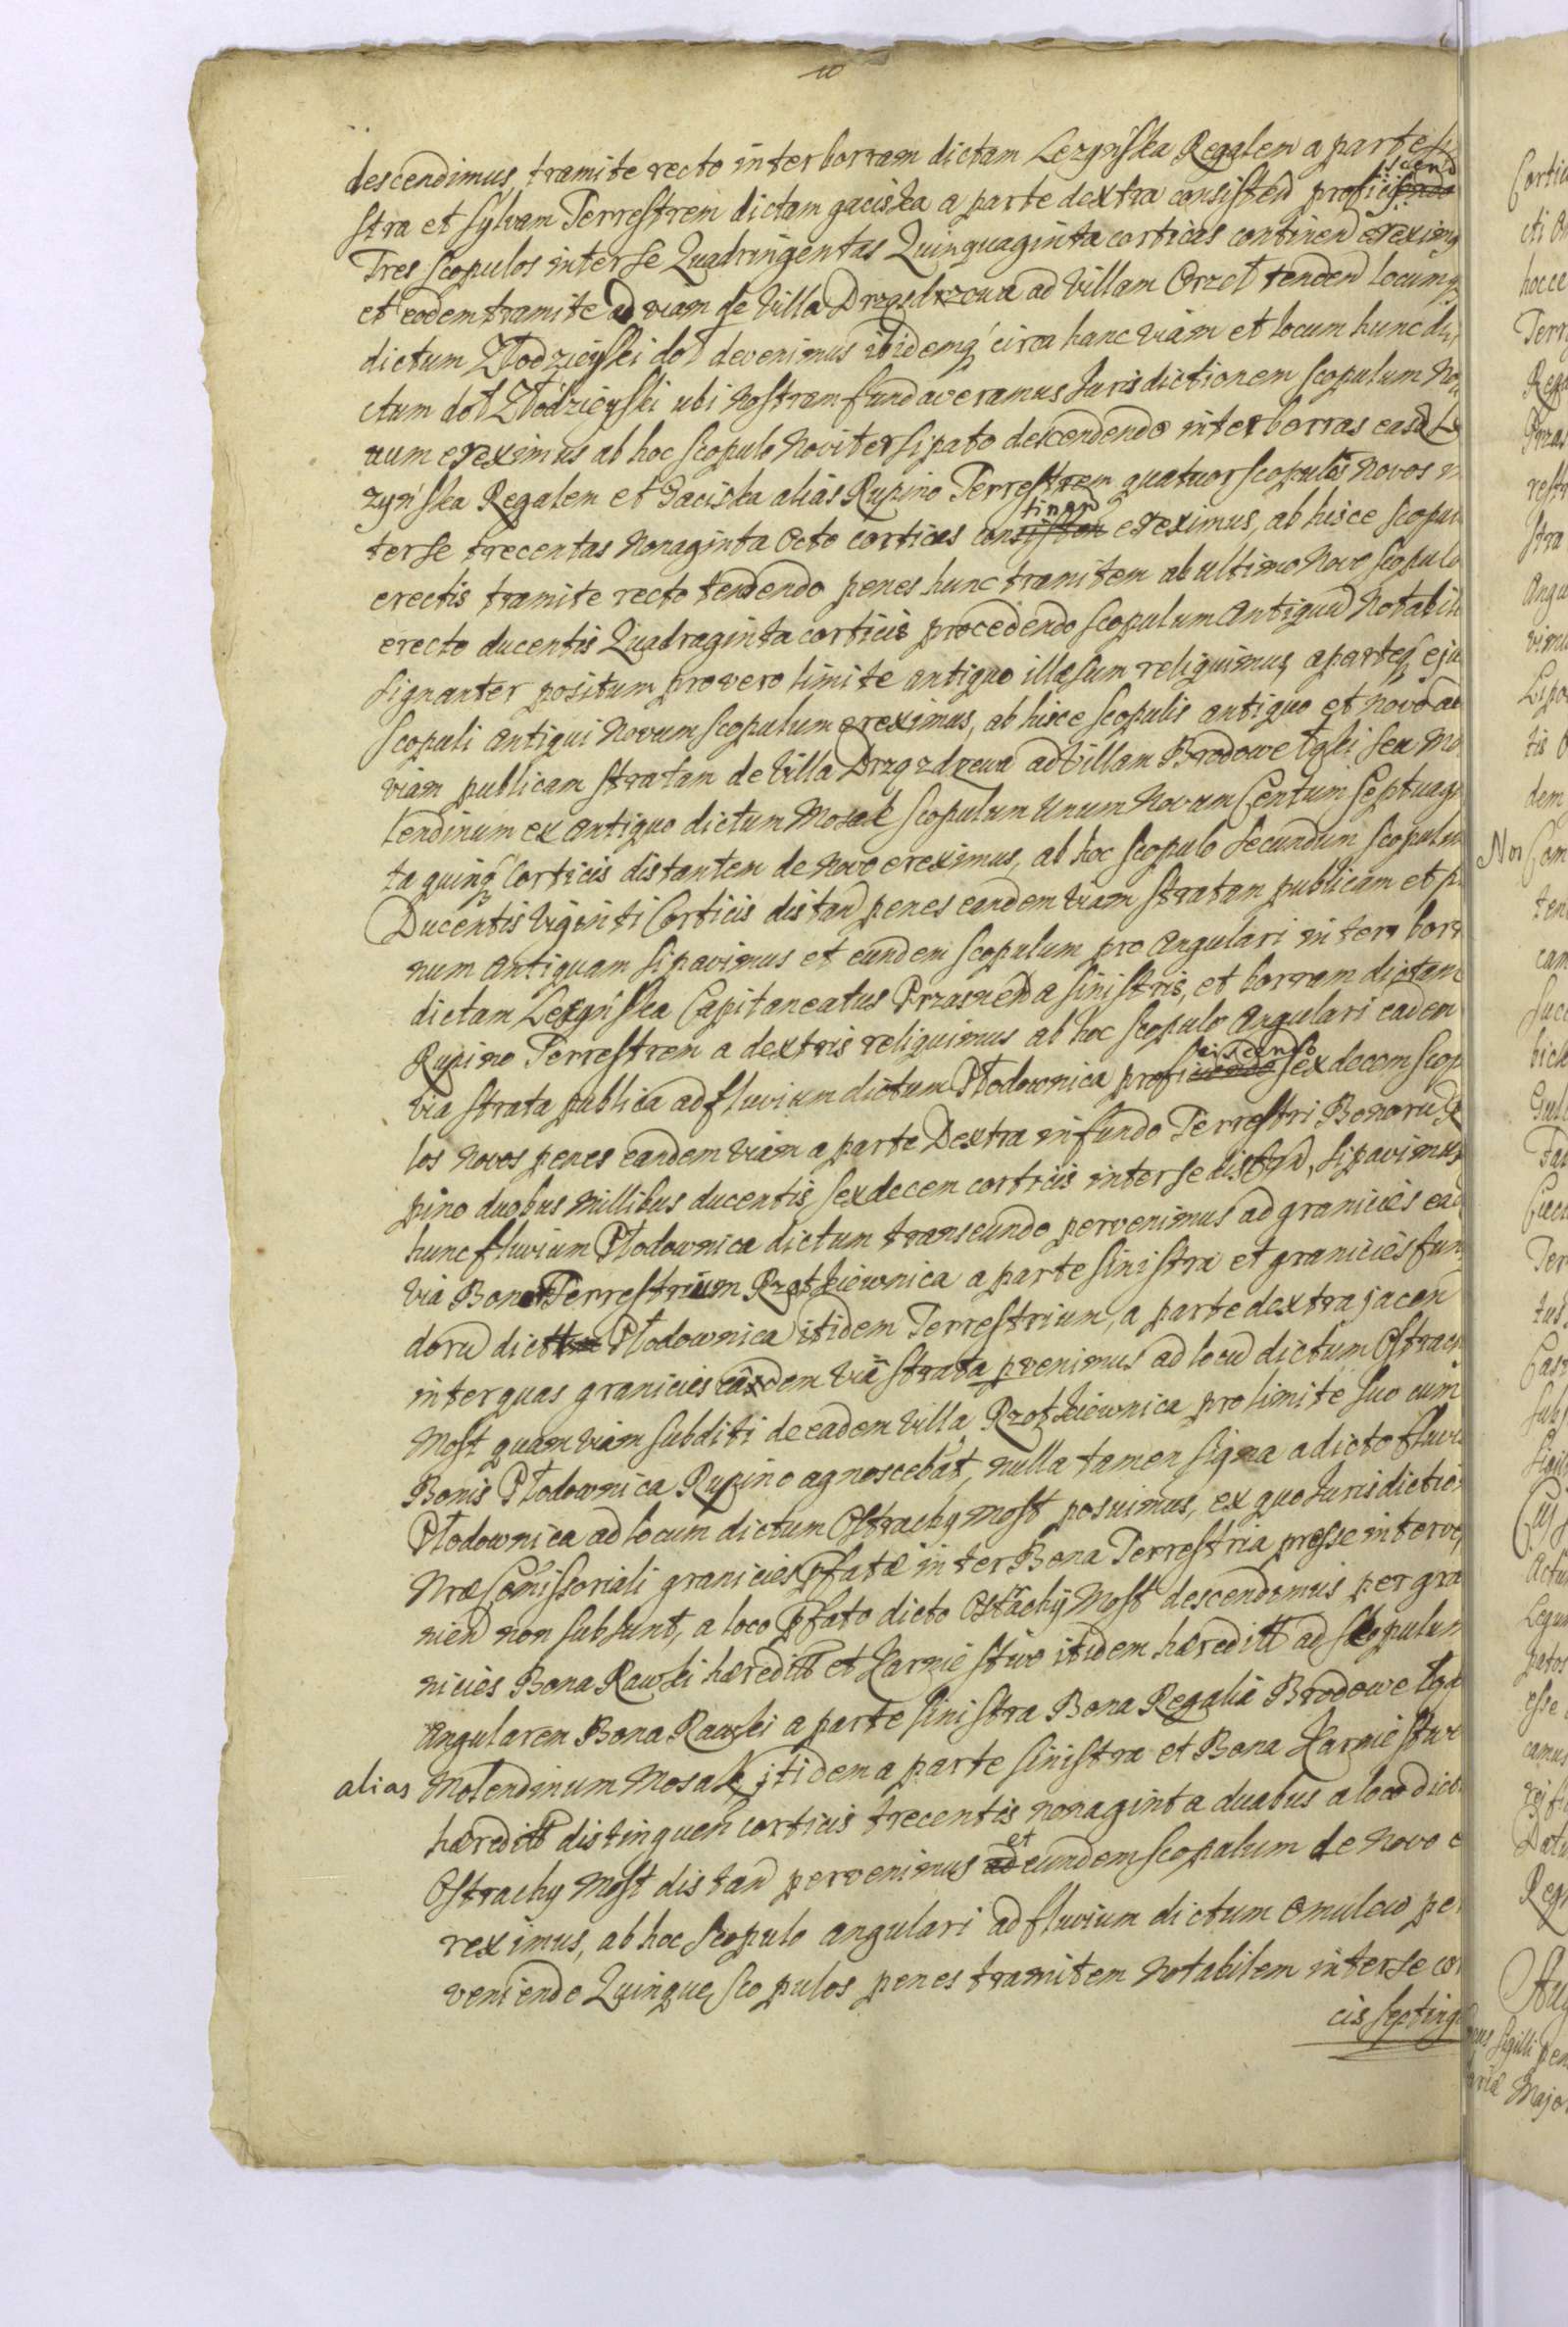 10
descendimus, tramite recto inter borram dictam Lezgnska Regalem a parte si
stra et sylvam Terrestrem dictam gaciska a parte dextra consisten proficiscend
Tres scopulos inter se Quadringentas Quinquaginta cortices continen ereximq
et eodem tramite ad viam de Villa Drzazdzewa ad Villam Orzoł tenden locumq
dictum Złodzieyski doł devenimus ibidemq circa hanc viam et locum hunc di
ctum doł Złodzieyski ubi Nostram fundaveramus Jurisdictionem scopulum No
vum ereximus ab hoc scopulo Noviter sipato descendendo inter borras easd Le
zyńska Regalem et Gaciska alias Rupino Terrestrem quatuor scopulos Novos in
ter se trecentas Nonaginta Octo cortices continen ereximus, ab hisce scopul
erectis tramite recto tendendo penes hunc tramitem ab ultimo Novo scopulo
erecto ducentis Quadraginta corticis procedendo scopulum Antiquu Notabili
signanter positum pro vero limite antiquo illæsum reliquimus, a parteq eju
scopuli Antiqui Novum scopulum ereximus, ab hisce scopulis antiquo et novo ad
viam publicam stratam de Villa Drzązdzewa ad Villam Brodowe Łąki seu Mo
lendinum ex Antiquo dictum Mosak scopulum Unum Novum Centum Septuagi
ta quinq Corticis distantem de Novo ereximus, ab hoc scopulo secundum scopulu
Ducentis Viginti Corticis distan penes eandem viam stratam publicam et pi
num Antiquam sipavimus et eundem scopulum pro Angulari inter borr
dictam Lezyńska Capitaneatus Przasnen a sinistris, et borram dictam
Rupino Terrestrem a dextris reliquimus ab hoc scopulo Angulari eadem
via strata publica ad fluvium dictum Płodownica proficiscendo sexdecem scop
los Novos penes eandem viam a parte Dextra in fundo Terrestri Bonoru R
pino duobus Millibus ducentis sexdecem corticis inter se distan, sipavimus
hunc fluvium Płodownica dictum transeundo pervenimus ad granicies ead
via Bonor Terrestrium Rzotkiewnica a parte sinistra et granicies fun
doru dict Płodownica itidem Terrestrium, a parte dextra jacen
inter quas granicies eâdem viâ strata pvenimus ad locu dictum Ostrachy
Most quam viam subditi de eadem Villa Rzotkiewnica pro limite suo cum
Bonis Płodownica Rupino agnoscebat, nulla tamen signa a dicto fluvi
Płodownica ad locum dictum Ostrachy Most posuimus, ex quo Jurisdictio
Nræ Comissoriali granicies pfatæ inter Bona Terrestria prosse interve
nien non subsunt, a loco pfato dicto Ostrachy Most descendemus per gra
nicies Bona Rawki hæreditt et Karnie stwo itidem hæreditt ad scopulum
Angularem Bona Rawki a parte sinistra Bona Regalia Brodowe Łąk
alias Molendinum Mosak itidem a parte sinistra et Bona Karnie stwo
hæreditt distinguen corticis trecentis nonaginta duabus a loco dict
Ostrachy Most distan pervenimus et eundem scopulum de Novo e
reximus, ab hoc scopulo angulari ad fluvium dictum Omulew pe
veniendo Quinque scopulos penes tramitem Notabilem inter se co
cis septing